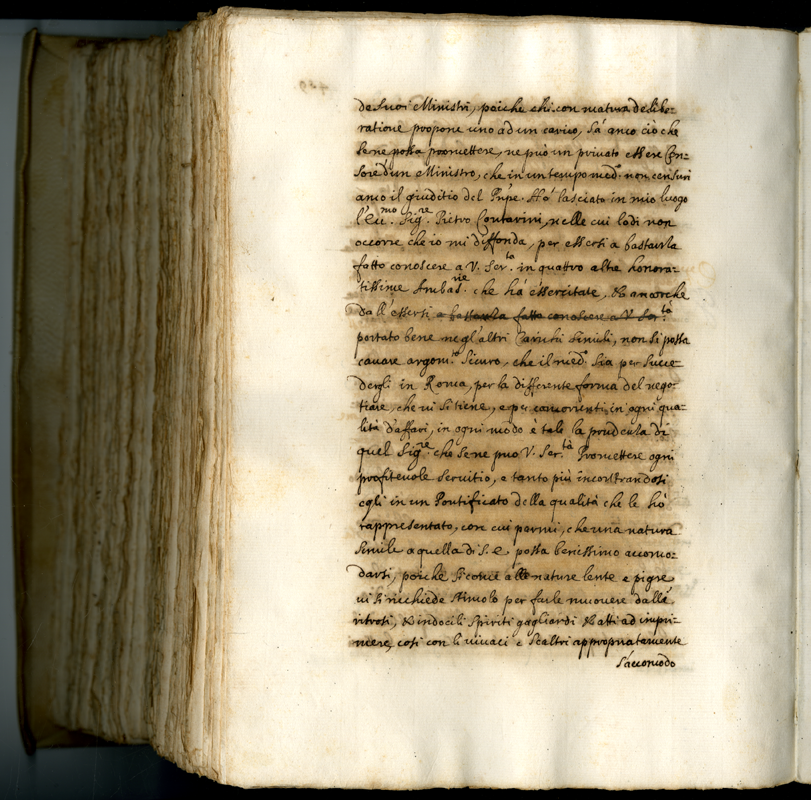 de suoi Ministri, poiche chi con matura delibe-
ratione propone uno ad un carico, sà anco ciò che
se ne possa promettere, ne può un privato essere Cen-
sore d'un Ministro, che in un tempo med.º non censuri
anco il giuditio del Pñpe. Hó lasciato in mio luogo
l'Ecc.mo Sig.re Pietro Contarini, nelle cui lodi non
occorre che io mi diffonda, per essersi a bastanza
fatto conoscere a V. Ser.tà in quattro altre honora-
tissime Ambas.rie che há essercitate, & ancorche
dall'essersi a bastanza fatto conoscere a V. Ser.tà
portato bene negl'altri Carichi simili, non si possa
cavare argom.to sicuro, che il med.º sia per succe-
dergli in Roma, per la differente forma del nego-
tiare, che vi si tiene, e per
in ogni qua-
lità d'affari, in ogni modo è tale la prudẽza di
quel Sig.re che se ne può V. Ser.tà Promettere ogni
profitevole servitio, e tanto più incontrandosi
egli in un Pontificato della qualità che le hó
rappresentato, con cui parmi, che una natura
simile a quella di S. E. possa benissimo accomo-
darsi, poiche sicome alle nature lente e pigre
vi si richiede stimolo per farle muovere dalle
ritrosi, & indocili spiriti gagliardi & atti ad impri-
mere, cosi con li vivaci e scaltri appropriatamente
s'accomodo